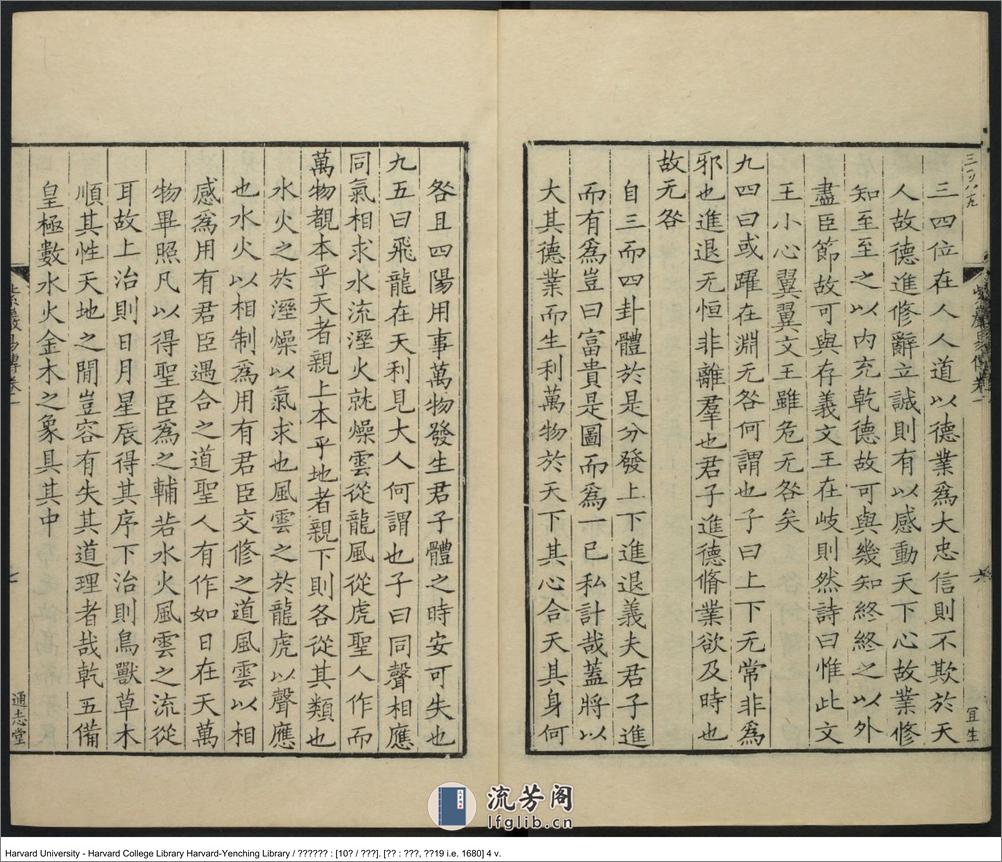 三四位在人人道以德業爲大忠信則不欺於天
人故德進修辭立誠則有以感動天下心故業修
知至至之以內充乾德故可與幾知終終之以外
盡臣節故可與存義文王在岐則然詩曰惟此文
王小心翼翼文王雖危无咎矣
九四曰或躍在淵无咎何謂也子曰上下无常非爲
邪也進退无恒非離羣也君子進德脩業欲及時也
故无咎
自三而四卦體於是分發上下進退義夫君子進
而有爲豈曰富貴是圖而爲一己私計哉蓋將以
大其德業而生利萬物於天下其心合天其身何
咎且四陽用事萬物發生君子體之時安可失也
九五曰飛龍在天利見大人何謂也子曰同聲相應
同氣相求水流溼火就燥雲從龍風從虎聖人作而
萬物覩本乎天者親上本乎地者親下則各從其類也
水火之於溼燥以氣求也風雲之於龍虎以聲應
也水火以相制爲用有君臣交修之道風雲以相
感爲用有君臣遇合之道聖人有作如日在天萬
物畢照凡以得聖臣爲之輔若水火風雲之流從
耳故上治則日月星辰得其序下治則鳥獸草木
順其性天地之閒豈容有失其道理者哉乾五備
皇極數水火金木之象具其中
七
通志堂
流芳阁
lfglib.cn
Harvard University - Harvard College Library Harvard-Yenching Library / ?????? : [10? / ???]. [?? : ???, ??19 i.e. 1680] 4 v.